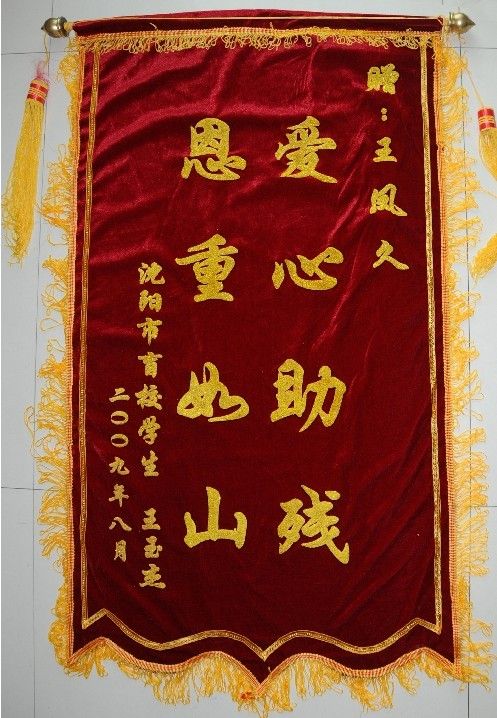 赠：王凤久
爱心助残
恩重如山
沈阳市盲校学生 王玉杰
二〇〇九年八月